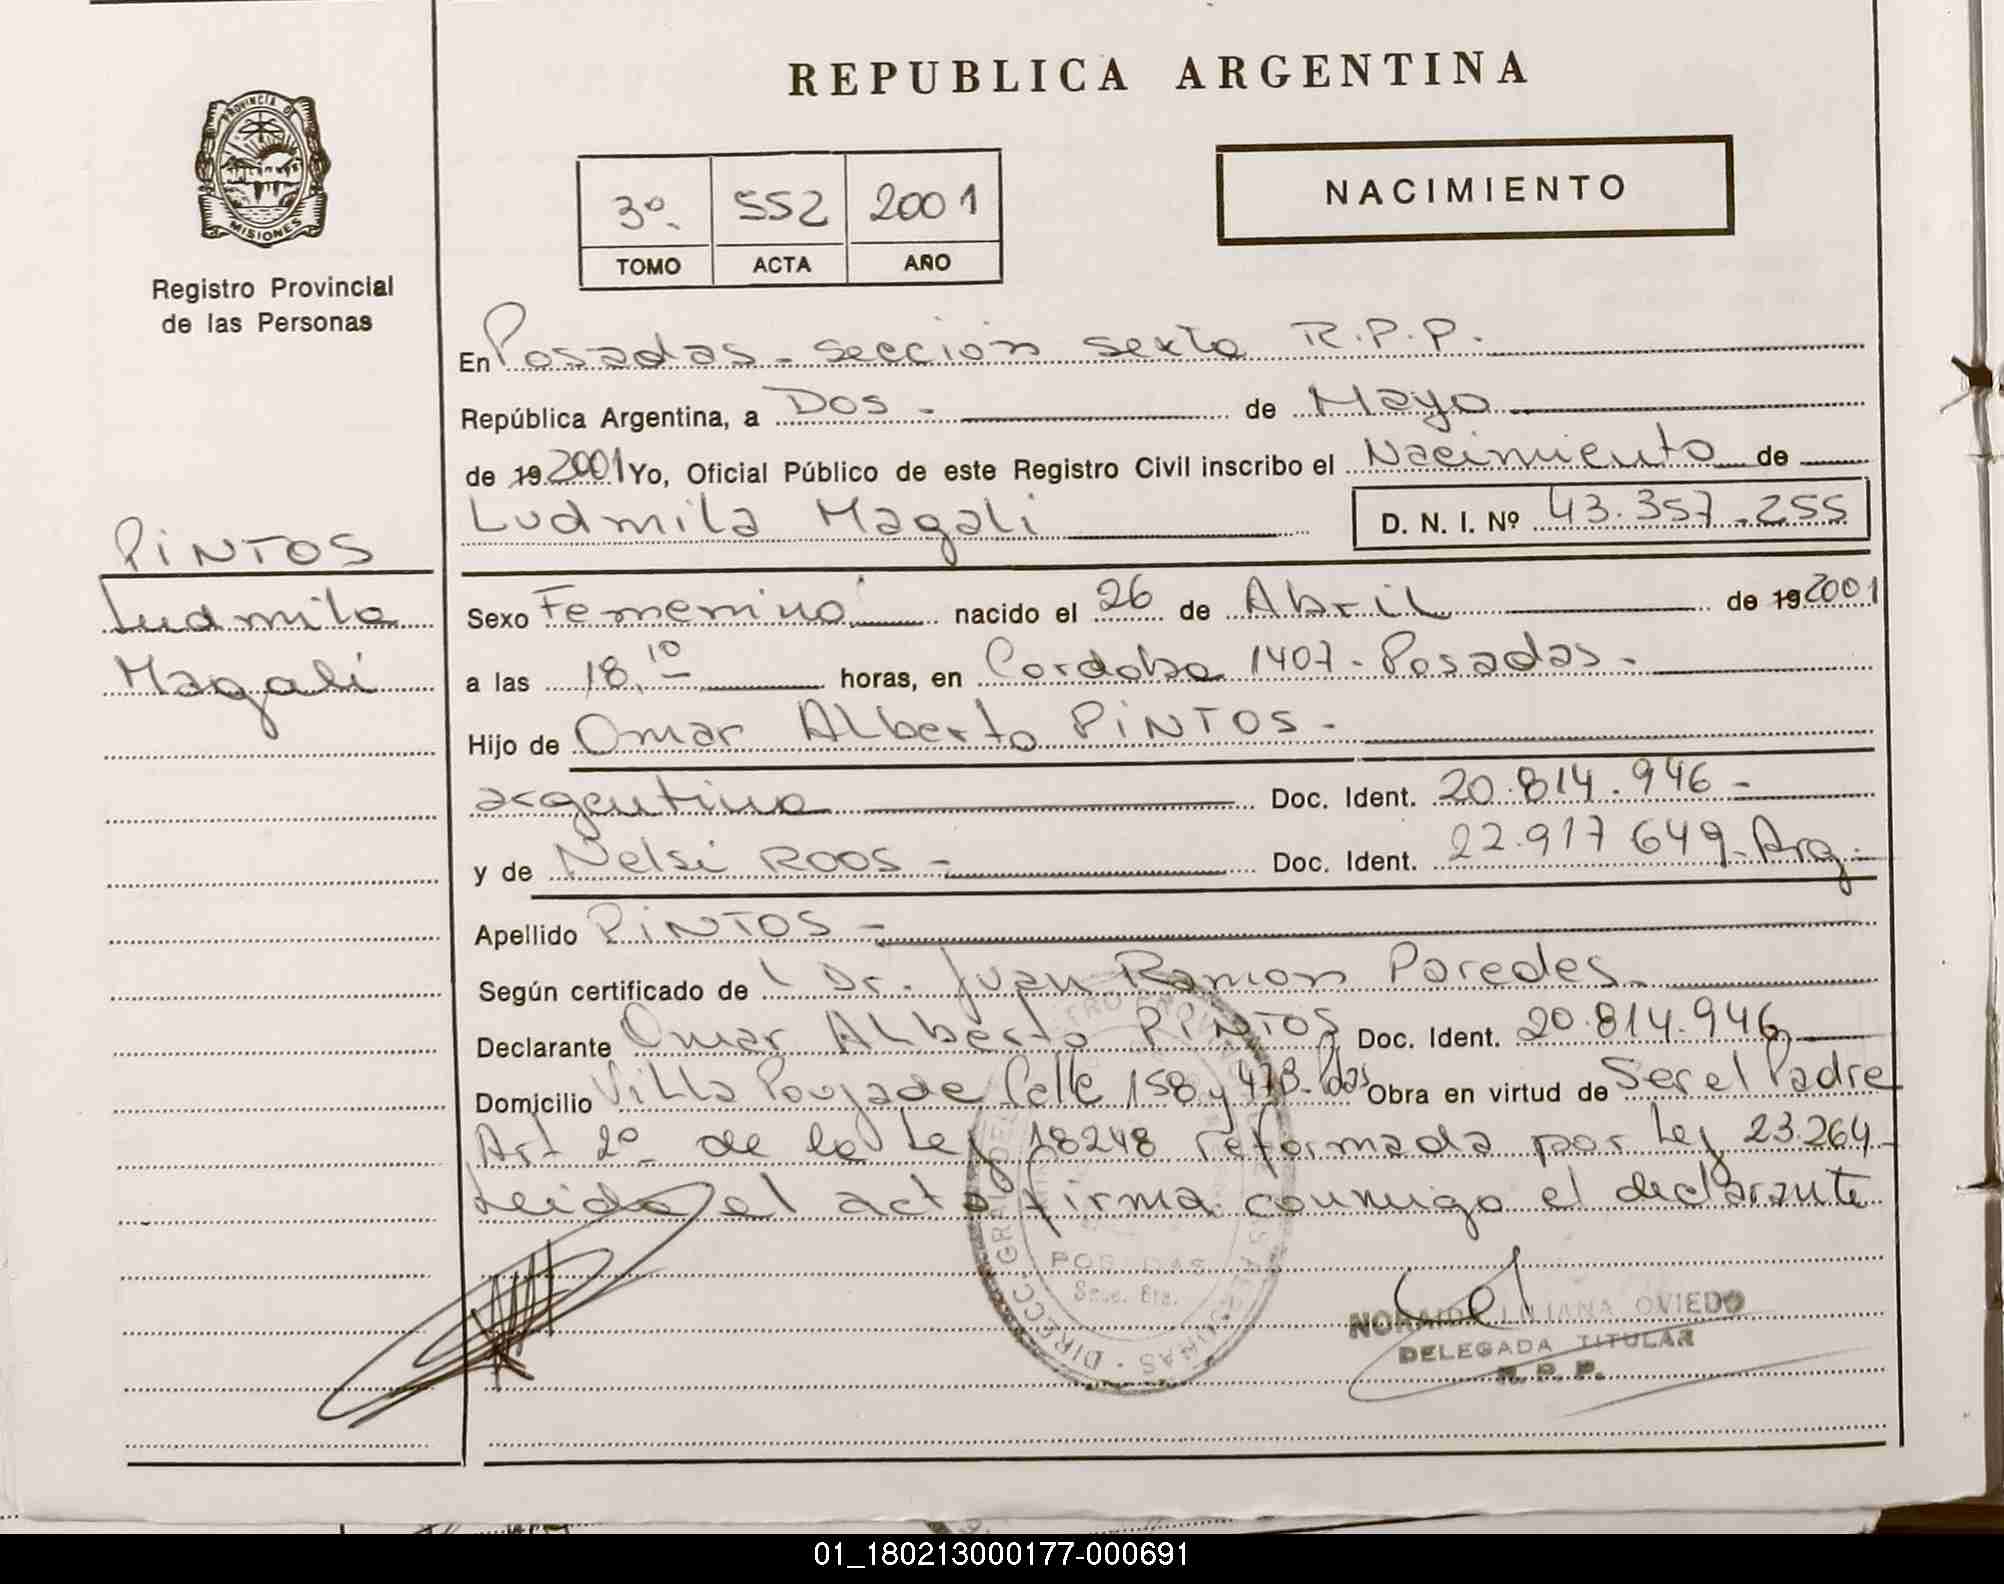 REPUBLICA ARGENTINA
PROVINCIA DE
MISIONES
Registro Provincial
de las Personas
NACIMIENTO
3º. 552 2001
TOMO ACTA AÑO
En Posadas - sección sexta R.P.P.
República Argentina, a Dos - de Mayo
de 19 2001 Yo, Oficial Público de este Registro Civil inscribo el Nacimiento de
Ludmila Magali D. N. I. Nº 43.357.255
PINTOS
Ludmila
Magali
Sexo Femenino nacido el 26 de Abril de 19 2001
a las 18,10 horas, en Cordoba 1407 - Posadas -
Hijo de Omar Alberto PINTOS -
argentino Doc. Ident. 20.814.946 -
y de Nelsi ROOS - Doc. Ident. 22.917 649 - Arg.
Apellido PINTOS -
Según certificado de Dr. Juan Ramon Paredes
Declarante Omar Alberto PINTOS Doc. Ident. 20.814.946
Domicilio Villa Poujade Calle 158 y 47B - Pdas Obra en virtud de Ser el Padre
Art 2º de la Ley 18248 reformada por Ley 23.264 -
Leido el acto firma conmigo el declarante
POSADAS
Secc. 6ta.
LILIANA OVIEDO
DELEGADA TITULAR
R. P. P.
01_180213000177-000691